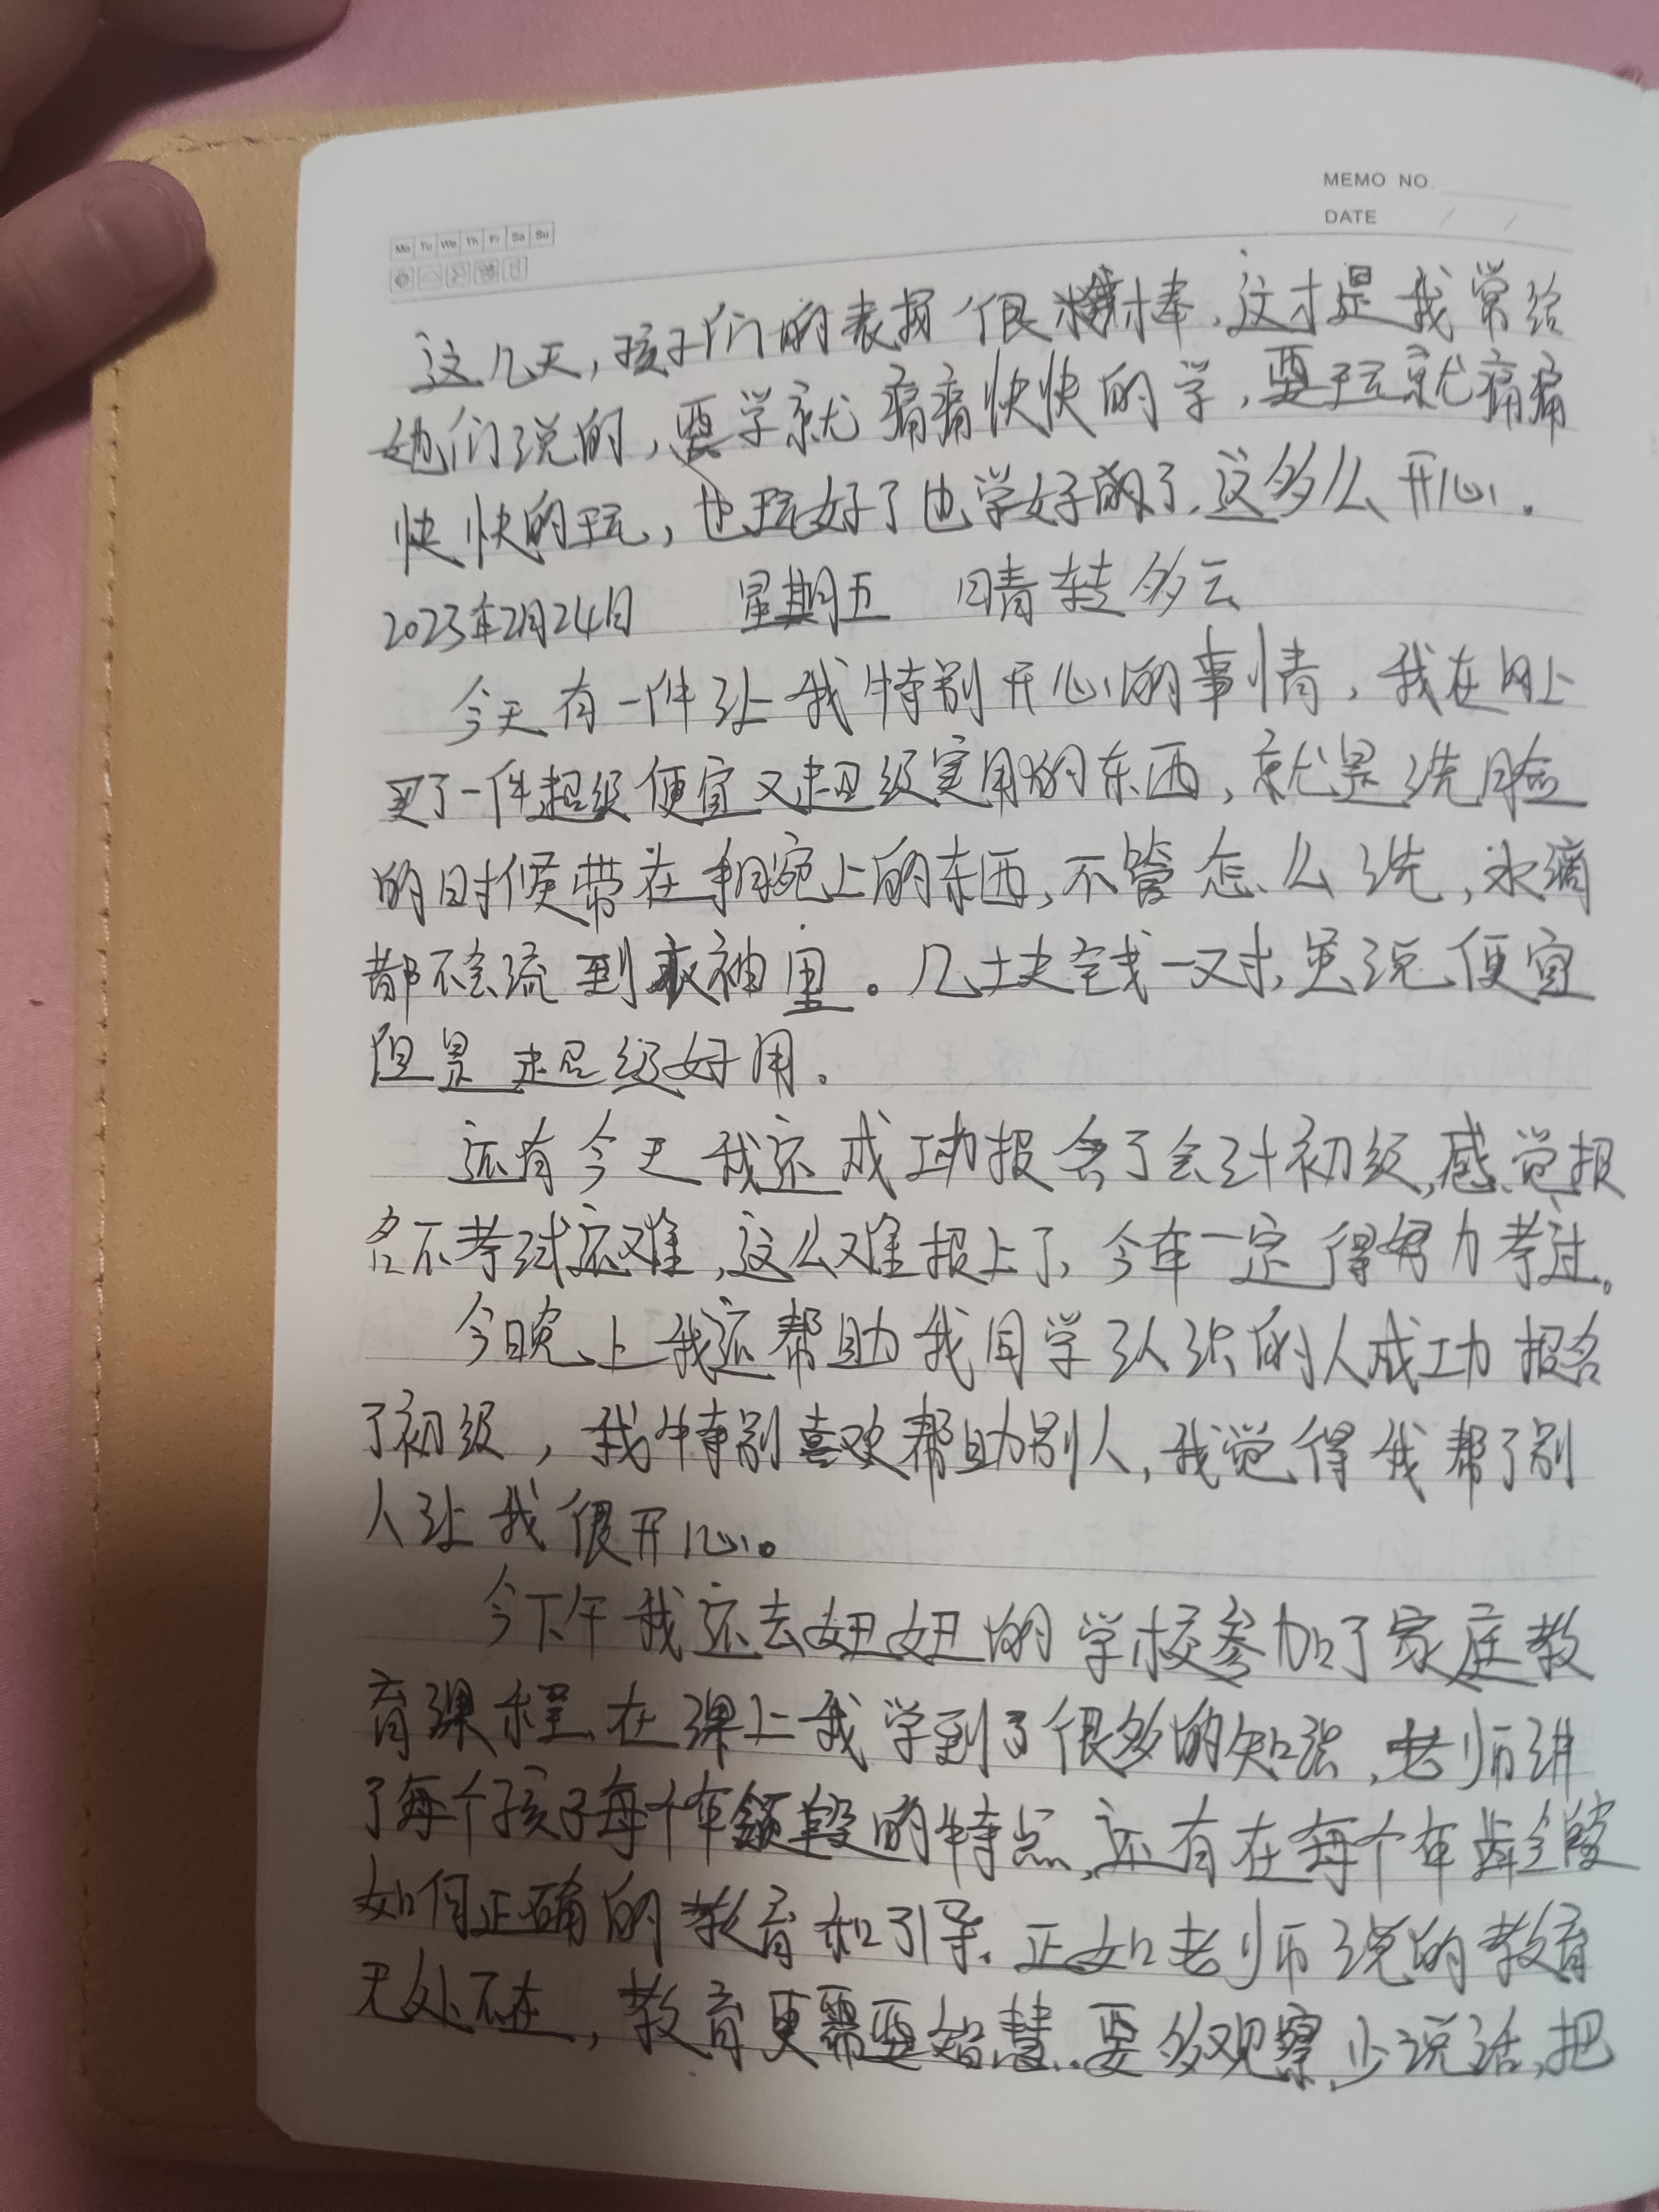 MEMO NO.
DATE / /
Mo Tu We Th Fr Sa Su
这几天,孩子们的表现很棒,这才是我常给
她们说的,要学就痛痛快快的学,要玩就痛痛
快快的玩,也玩好了也学好的了,这多么开心。
2023年2月24日 星期五 晴转多云
今天有一件让我特别开心的事情,我在网上
买了一件超级便宜又超级实用的东西,就是洗脸
的时候带在手腕上的东西,不管怎么洗,水滴
都不会流到衣袖里。几块钱一对,虽说便宜
但是超级好用。
还有今天我还成功报名了会计初级,感觉报
名不考试还难,这么难报上了,今年一定得努力考过。
今晚上我还帮助我同学认识的人成功报名
了初级,我特别喜欢帮助别人,我觉得我帮了别
人让我很开心。
今下午我还去妞妞的学校参加了家庭教
育课程,在课上我学到了很多的知识,老师讲
了每个孩子每个年龄段的特点,还有在每个年龄段
如何正确的教育和引导。正如老师说的教育
无处不在,教育更需要智慧..要多观察,少说话,把